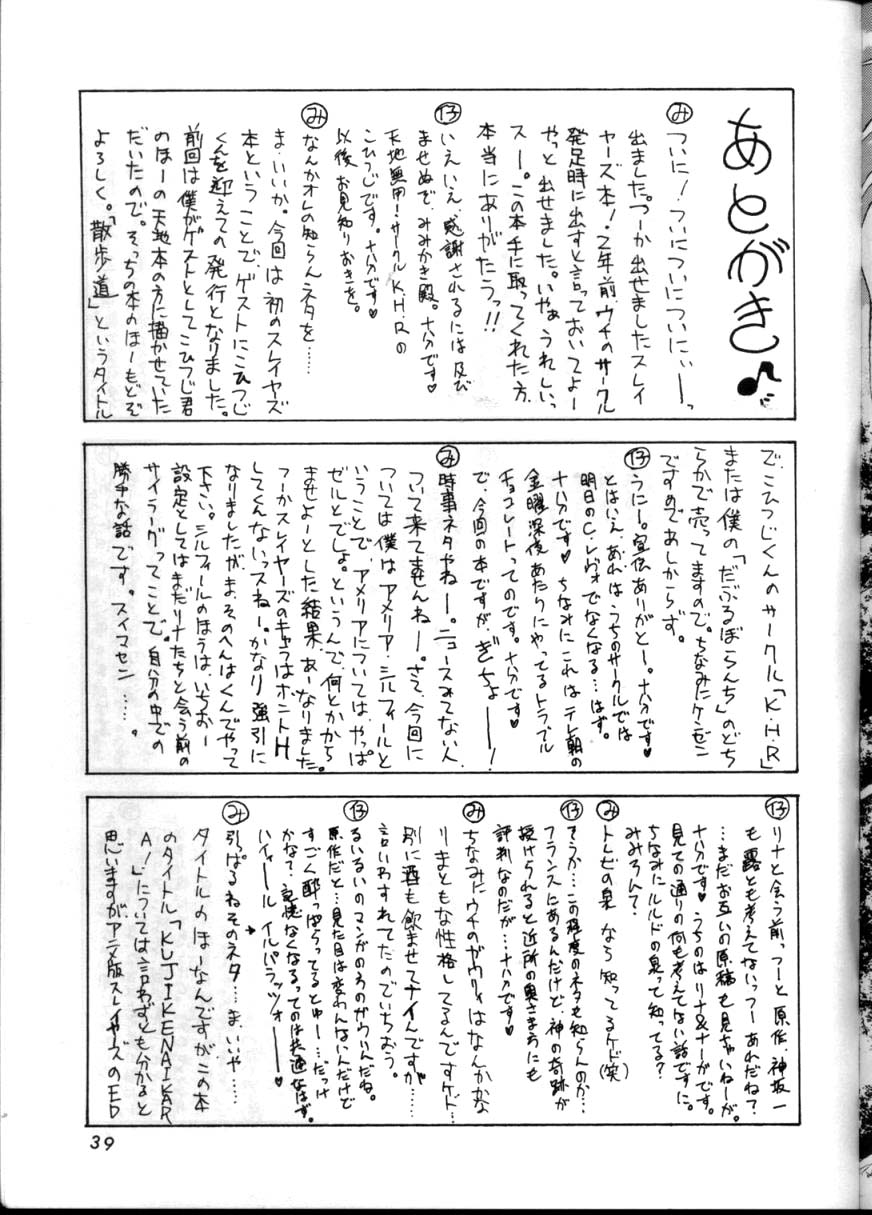 あとがき♪
み ついに!ついについについにぃーっ
出ました。つーか出せましたスレイ
ヤーズ本!2年前、ウチのサークル
発足時に出すと言っておいてよー
やっと出せました。いやぁうれしいっ
スー。この本手に取ってくれた方、
本当にありがたうっ!!
13 いえいえ、感謝されるには及び
ませぬで、みみかき殿。十分です♥
天地無用!サークルK.H.Rの
こひつじです。十分です♥
以後お見知りおきを。
み なんかオレの知らんネタを……
ま、いいか。今回は初のスレイヤーズ
本ということで、ゲストにこひつじ
くんを迎えての発行となりました。
前回は僕がゲストとしてこひつじ君
のほーの天地本の方に描かせていた
だいたので。そっちの本のほーもどぞ
よろしく。「散歩道」というタイトル
で、こひつじくんのサークル「K・H・R」
または僕の「だぶるぼらんち」のどち
らかで売ってますので。ちなみにケンゼン
ですのであしからず。
13 うにー。宣伝ありがとー。十分です♥
とはいえ、あれはうちのサークルでは
明日のC.レヴォでなくなる…はず。
十分です♥ ちなみにこれはテレ朝の
金曜深夜あたりにやってるトラブル
チョコレートってのです。十分です♥
で、今回の本ですが、ぎちょーー!
み 時事ネタやねー。ニュースみてない人、
ついて来てませんねー。さて、今回に
ついては僕はアメリア・シルフィールと
いうことで、アメリアについては、やっぱ
ゼルとでしょ。というんで、何とかから
ませよーとした結果、あーなりました。
つーかスレイヤーズのキャラはホントH
してくんないっスねー。かなり強引に
なりましたが、ま、そのへんはくんでやって
下さい。シルフィールのほうは、いちおー
設定としてはまだリナたちと会う前の
サイラーグってことで。自分の中での
勝手な話です。スイマセン……。
13 リナと会う前っつーと原作、神坂一
も露とも考えてないっつーあれだね?
…まだお互いの原稿も見ちゃいねーが。
十分です♥ うちのはリナ&ナーガです。
見ての通りの何も考えてない話ですに。
ちなみにルルドの泉って知ってる?
みみろんて?
み トレビの泉なら知ってるケド(笑)
13 そうか…この程度のネタも知らんのか…
フランスにあるんだけど、神の奇跡が
授けられると近所の奥さまにも
評判なのだが…十分です♥
み ちなみにウチのガウリィはなんかかな
りまともな性格してるんですケド…
別に酒も飲ませてナイんですが……
言いわすれてたのでいちおう。
13 るいるいのマンガのそのガウリィんだね。
原作だと…見た目は変わんないんだけど
すごく酔っぱらってるとゆー…だっけ
かな?記憶なくなるってのは共通なはず。
ハイィール イルパラッツォーー♥
み 引っぱるねそのネタ…ま、いいや……
タイトルのほーなんですが、この本
のタイトル「KUJIKENAIKAR
A!」については言わずとも分かると
思いますがアニメ版スレイヤーズのED
39